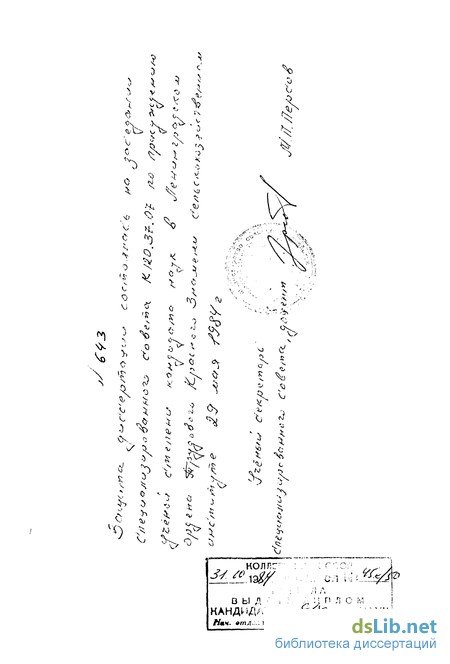 N 643
Защита диссертации состоялась на заседании
специализированного совета К120.37.07 по присуждению
учёной степени кандидата наук в Ленинградском
ордена Трудового Красного Знамени сельскохозяйственном
институте 29 мая 1984 г
Учёный секретарь
специализированного совета, доцент М.П. Персов
31. 1984 г. 45с/50
ВЫДА ДИПЛОМ
КАНДИДА
Нач. отдел
dslib.net
библиотека диссертаций